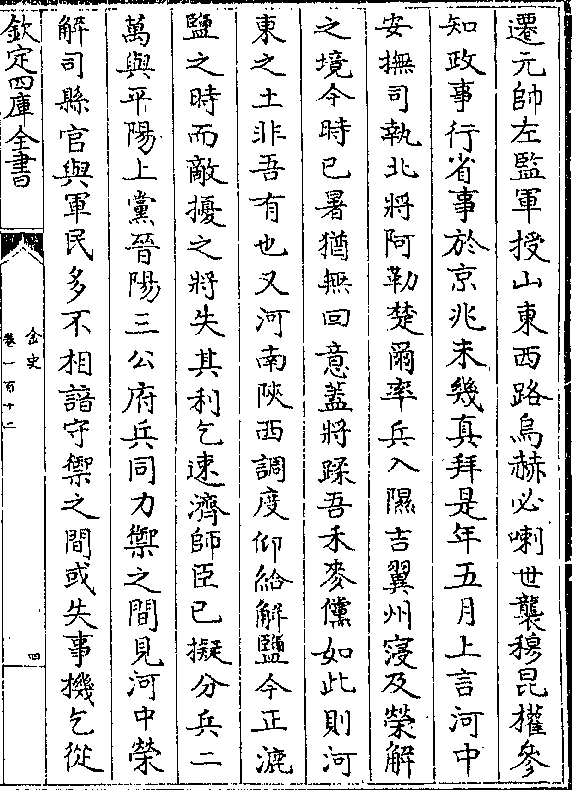 遷元帥左監軍授山東西路烏赫必喇世襲穆昆權參
知政事行省事於京兆未幾真拜是年五月上言河中
安撫司執北將阿勒楚爾率兵入隰吉翼州寖及榮解
之境今時已暑猶無回意蓋將蹂吾禾麥儻如此則河
東之土非吾有也又河南陜西調度仰給解鹽今正漉
鹽之時而敵擾之將失其利乞速濟師臣已擬分兵二
萬與平陽上黨晉陽三公府兵同力禦之間見河中榮
解司縣官與軍民多不相諳守禦之間或失事機乞從
欽定四庫全書
金史
卷一百十二
四